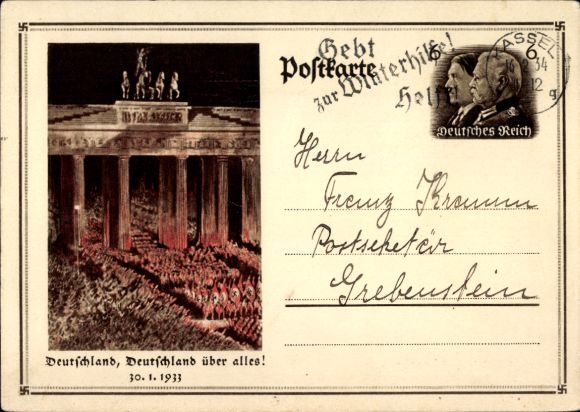 Gebt
zur Winterhilfe!
Helft!
Postkarte
KASSEL
34
12
g
6 6
Deutsches Reich
Herrn
Franz Kramm
Postsekretär
Grebenstein
Deutschland, Deutschland über alles!
30. 1. 1933